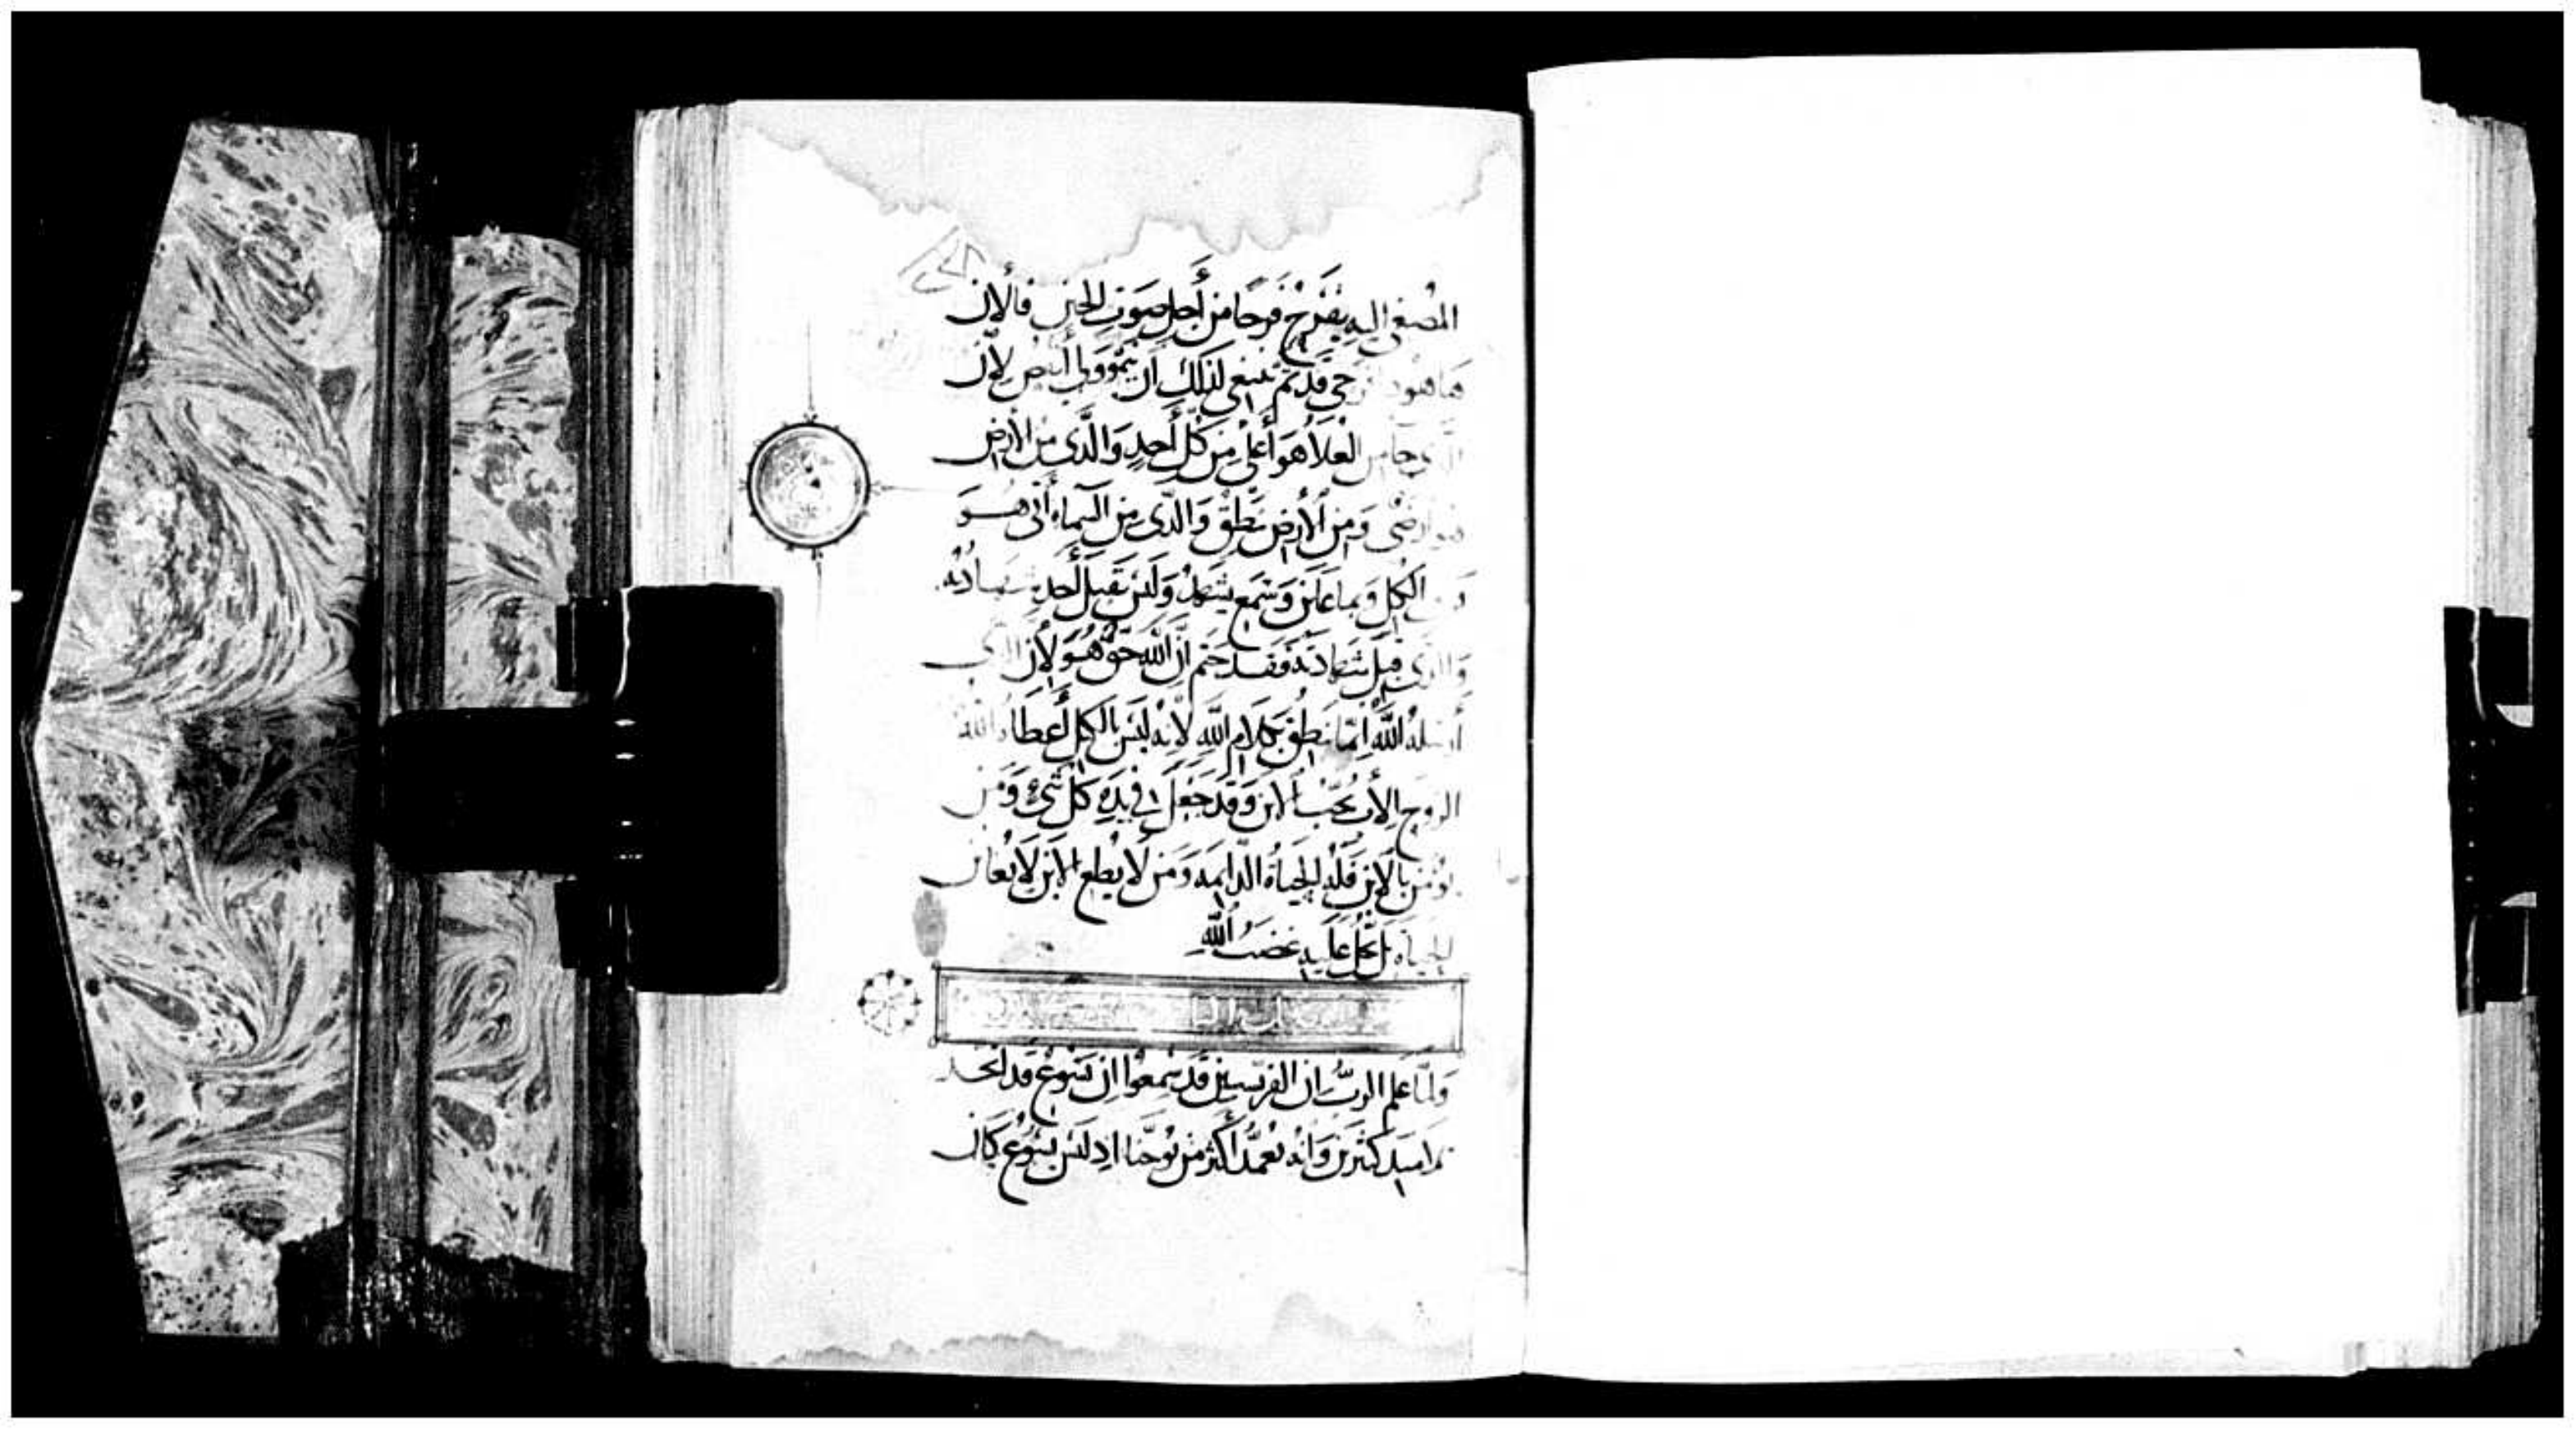 المُصغي اليه يَفرَحُ فَرحًا مِن أَجلِ صَوتِ الختن فالان
هاهوذا فرحي قد تم ينبغي لذلك ان ينمو ولي أنقص لأن
الذي جا من العلا هُوَ أعلى مِن كل أحدٍ وَالَّذى من الأرض
هو ارضى وَمِن الأرض يَنطِقُ وَالذى مِن السماءِ أتى هــو
فوق الكل وَبما عَايَن وَسَمع يَشهَدُ وَلَيسَ يَقبل أحد شهادته
وَالذى قبل شهادته فَقَد خَتم انَّ اللّه حَقٌ هُوَ لأن الذى
أرسله اللّه انمّا ينطق بكَلام اللّهِ لأنهُ ليسَ بالكيل أعطاه الله
الروح الأب يُحِبُّ الابن وَقَد جَعَلَ في يَدِهِ كلَ شَىءٍ وَمَن
يؤمن بالابن فَلَهُ الحياةُ الدّايمه وَمَن لا يطع الابن لا يعاين
الحياه بل يَحُل عليه غضبُ اللّهِ
وَلمَّا علم الربُّ ان الفرّيسيين قَد سَمِعُوا ان يَسُوعَ قد اتخـذ
تلاميذ كثيرين وَانهُ يعمّد أكثر من يُوحَنّا اذ ليسَ يَسُوع كان